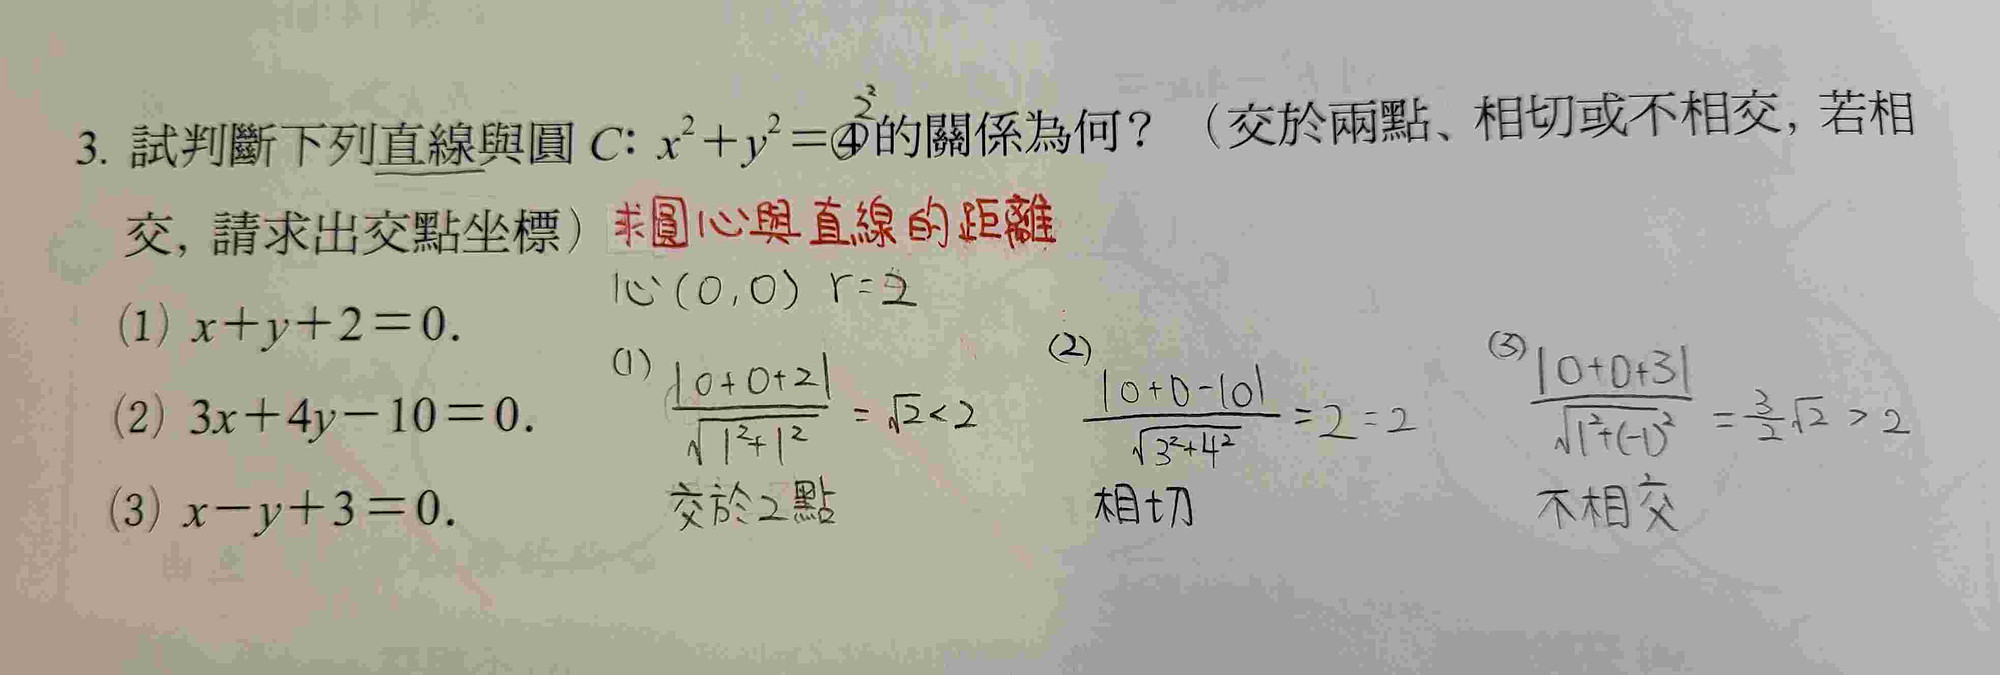 3. 試判斷下列直線與圓 C: x²+y²=4 2² 的關係為何? (交於兩點、相切或不相交, 若相
交, 請求出交點坐標) 求圓心與直線的距離
心(0,0) r=2
(1) x+y+2=0.
(2) 3x+4y-10=0.
(3) x-y+3=0.
(1) |0+0+2| / √1²+1² = √2 < 2
交於2點
(2) |0+0-10| / √3²+4² = 2 = 2
相切
(3) |0+0+3| / √1²+(-1)² = 3/2 √2 > 2
不相交